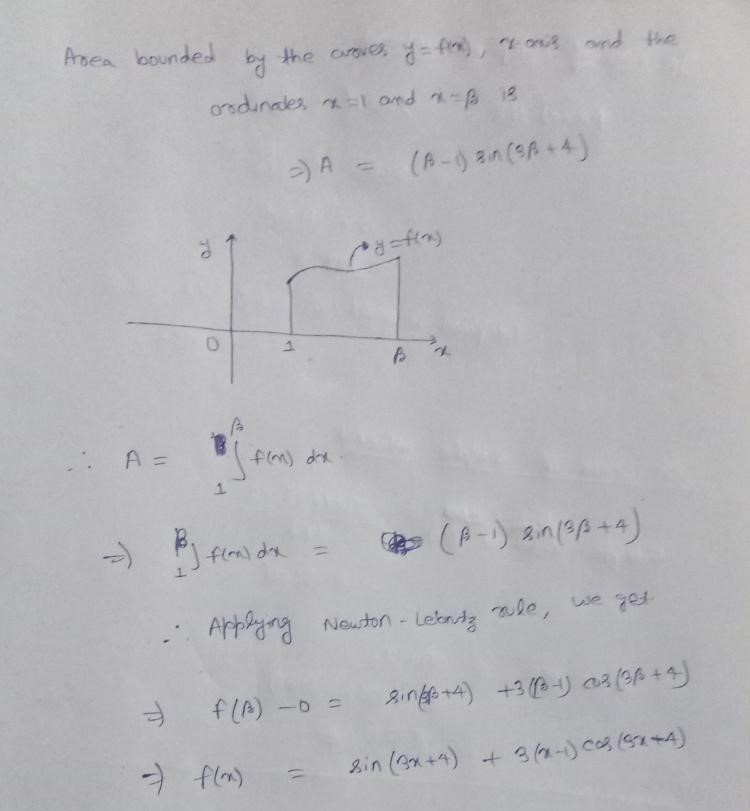 Area bounded by the curves y=f(x), x-axis and the
ordinates x=1 and x=β is
⇒ A = (β-1) sin(3β+4)
y
y=f(x)
0 1 β x
∴ A = ∫₁^β f(x) dx.
⇒ ∫₁^β f(x) dx = (β-1) sin(3β+4)
∴ Applying Newton-Lebnitz rule, we get
⇒ f(β) - 0 = sin(3β+4) + 3(β-1) cos(3β+4)
⇒ f(x) = sin(3x+4) + 3(x-1) cos(3x+4)